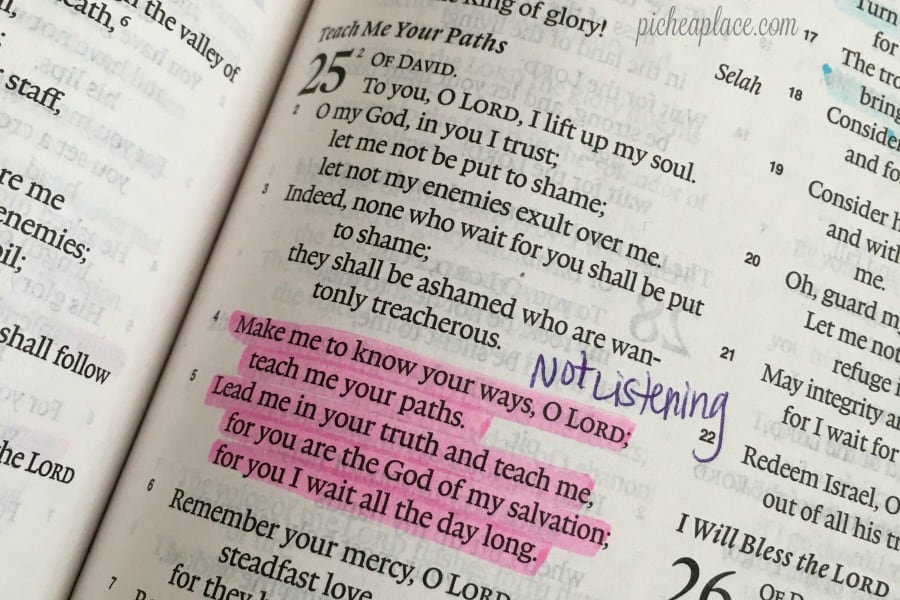 the valley of
eath, 6
staff,
re me
enemies;
oil;
shall follow
the LORD
King of glory!
Teach Me Your Paths
25 2 OF DAVID.
To you, O LORD, I lift up my soul.
2 O my God, in you I trust;
let me not be put to shame;
let not my enemies exult over me.
3 Indeed, none who wait for you shall be put
to shame;
they shall be ashamed who are wan-
tonly treacherous.
4 Make me to know your ways, O LORD;
teach me your paths.
5 Lead me in your truth and teach me,
for you are the God of my salvation;
for you I wait all the day long.
Not Listening
6 Remember your mercy, O LORD
steadfast love
for they
7
picheaplace.com
Selah
Turn
for
17 The tro
bring
18 Consider
and fo
19 Consider h
and with
me.
20 Oh, guard my
Let me not
refuge i
21 May integrity a
for I wait for
22 Redeem Israel, O
out of all his tr
I Will Bless the LORD
26 OF D